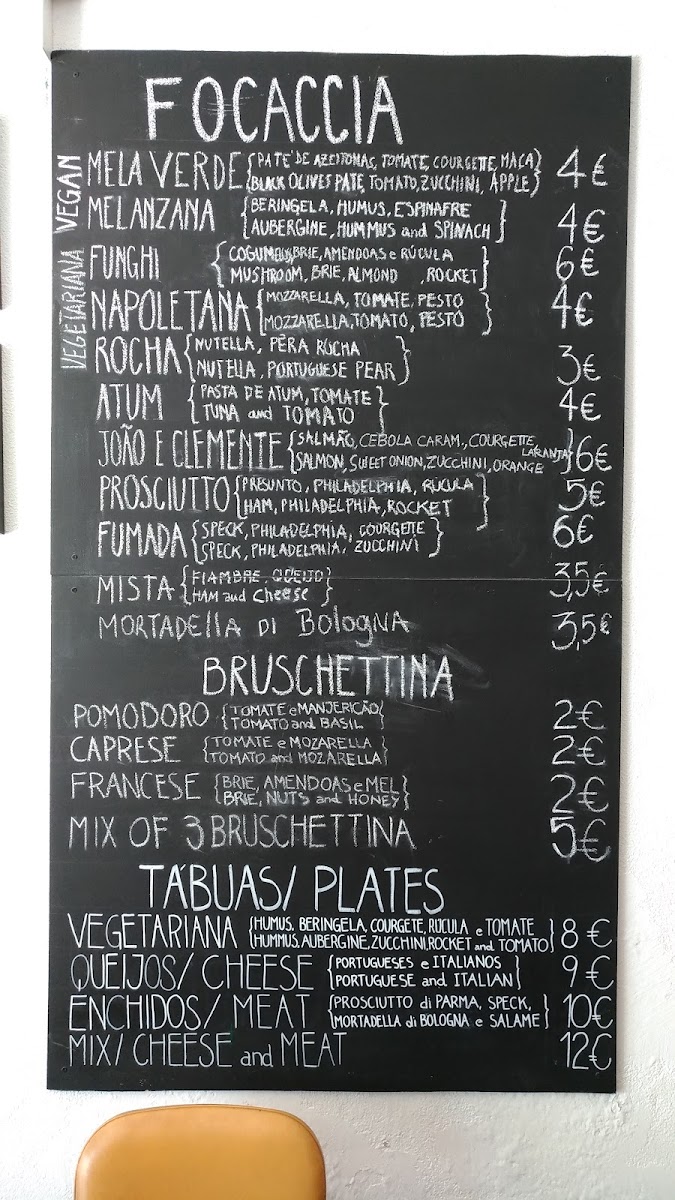 FOCACCIA
VEGAN
MELA VERDE {PATE' DE AZEITONAS, TOMATE, COURGETTE, MAÇA} 4€
BLACK OLIVES PATE, TOMATO, ZUCCHINI, APPLE
MELANZANA {BERINGELA, HUMUS, ESPINAFRE} 4€
AUBERGINE, HUMMUS and SPINACH
VEGETARIANA
FUNGHI {COGUMELOS, BRIE, AMENDOAS e RÚCULA} 6€
MUSHROOM, BRIE, ALMOND , ROCKET
NAPOLETANA {MOZZARELLA, TOMATE, PESTO} 4€
MOZZARELLA, TOMATO, PESTO
ROCHA {NUTELLA, PÊRA ROCHA} 3€
NUTELLA, PORTUGUESE PEAR
ATUM {PASTA DE ATUM, TOMATE} 4€
TUNA and TOMATO
JOÃO E CLEMENTE {SALMÃO, CEBOLA CARAM., COURGETTE, LARANJA} 6€
SALMON, SWEET ONION, ZUCCHINI, ORANGE
PROSCIUTTO {PRESUNTO, PHILADELPHIA, RÚCULA} 5€
HAM, PHILADELPHIA, ROCKET
FUMADA {SPECK, PHILADELPHIA, COURGETTE} 6€
SPECK, PHILADELPHIA, ZUCCHINI
MISTA {FIAMBRE, QUEIJO} 3,5€
HAM and Cheese
MORTADELLA DI BOLOGNA 3,5€
BRUSCHETTINA
POMODORO {TOMATE e MANJERICÃO} 2€
TOMATO and BASIL
CAPRESE {TOMATE e MOZARELLA} 2€
TOMATO and MOZARELLA
FRANCESE {BRIE, AMENDOAS e MEL} 2€
BRIE, NUTS and HONEY
MIX OF 3 BRUSCHETTINA 5€
TÁBUAS/ PLATES
VEGETARIANA {HUMUS, BERINGELA, COURGETE, RUCULA e TOMATE} 8€
HUMMUS, AUBERGINE, ZUCCHINI, ROCKET and TOMATO
QUEIJOS/ CHEESE {PORTUGUESES e ITALIANOS} 9€
PORTUGUESE and ITALIAN
ENCHIDOS/ MEAT {PROSCIUTTO di PARMA, SPECK,} 10€
MORTADELLA di BOLOGNA e SALAME
MIX/ CHEESE and MEAT 12€